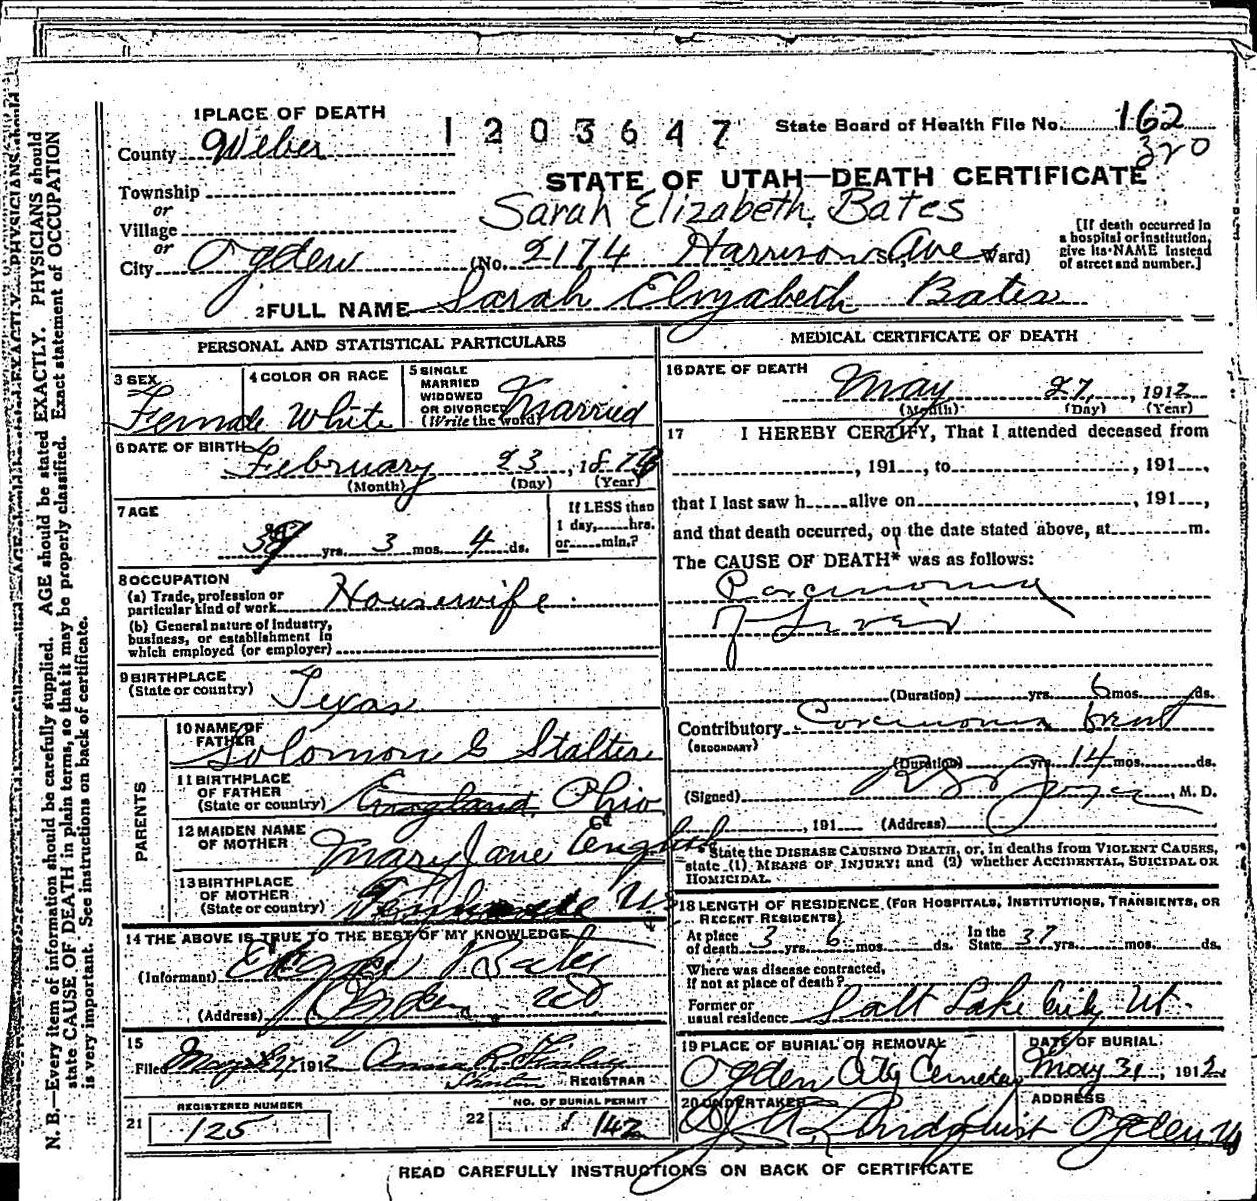 1 PLACE OF DEATH
1203647
State Board of Health File No. 162
320
County Weber
STATE OF UTAH—DEATH CERTIFICATE
Township
or
Sarah Elizabeth Bates
Village
or
City Ogden (No. 2174 Harrison Ave St., Ward)
[If death occurred in
a hospital or institution,
give its NAME instead
of street and number.]
2 FULL NAME Sarah Elizabeth Bates
PERSONAL AND STATISTICAL PARTICULARS
3 SEX
Female
4 COLOR OR RACE
White
5 SINGLE
MARRIED
WIDOWED
OR DIVORCED
(Write the word)
Married
6 DATE OF BIRTH
February 23, 187
(Month) (Day) (Year)
7 AGE
yrs. 3 mos. 4 ds.
If LESS than
1 day, hrs.
or min.?
8 OCCUPATION
(a) Trade, profession or
particular kind of work Housewife
(b) General nature of industry,
business, or establishment in
which employed (or employer)
9 BIRTHPLACE
(State or country) Texas
PARENTS
10 NAME OF
FATHER Solomon G Stalter
11 BIRTHPLACE
OF FATHER
(State or country) England, Ohio
12 MAIDEN NAME
OF MOTHER Mary Jane English
13 BIRTHPLACE
OF MOTHER
(State or country)
14 THE ABOVE IS TRUE TO THE BEST OF MY KNOWLEDGE
(Informant) Bates
(Address) Ogden
15
Filed May 1912
REGISTRAR
REGISTERED NUMBER
21 125
NO. OF BURIAL PERMIT
22 142
MEDICAL CERTIFICATE OF DEATH
16 DATE OF DEATH
May 27, 1912
(Month) (Day) (Year)
17 I HEREBY CERTIFY, That I attended deceased from
, 191 , to , 191 ,
that I last saw h alive on , 191 ,
and that death occurred, on the date stated above, at m.
The CAUSE OF DEATH* was as follows:
Carcinoma
of Liver
(Duration) yrs. 6 mos. ds.
Contributory Carcinoma Breast
(SECONDARY)
(Duration) yrs. 14 mos. ds.
(Signed) , M. D.
, 191 (Address)
*State the DISEASE CAUSING DEATH, or, in deaths from VIOLENT CAUSES,
state (1) MEANS OF INJURY; and (2) whether ACCIDENTAL, SUICIDAL OR
HOMICIDAL.
18 LENGTH OF RESIDENCE (FOR HOSPITALS, INSTITUTIONS, TRANSIENTS, OR
RECENT RESIDENTS)
At place
of death 3 yrs. 6 mos. ds.
In the
State 37 yrs. mos. ds.
Where was disease contracted,
if not at place of death?
Former or
usual residence Salt Lake City Ut.
19 PLACE OF BURIAL OR REMOVAL
Ogden City Cemetery
DATE OF BURIAL
May 31, 1912
20 UNDERTAKER
Lindquist
ADDRESS
Ogden, Ut
READ CAREFULLY INSTRUCTIONS ON BACK OF CERTIFICATE
N. B.—Every item of information should be carefully supplied. AGE should be stated EXACTLY. PHYSICIANS should
state CAUSE OF DEATH in plain terms, so that it may be properly classified. Exact statement of OCCUPATION
is very important. See instructions on back of certificate.